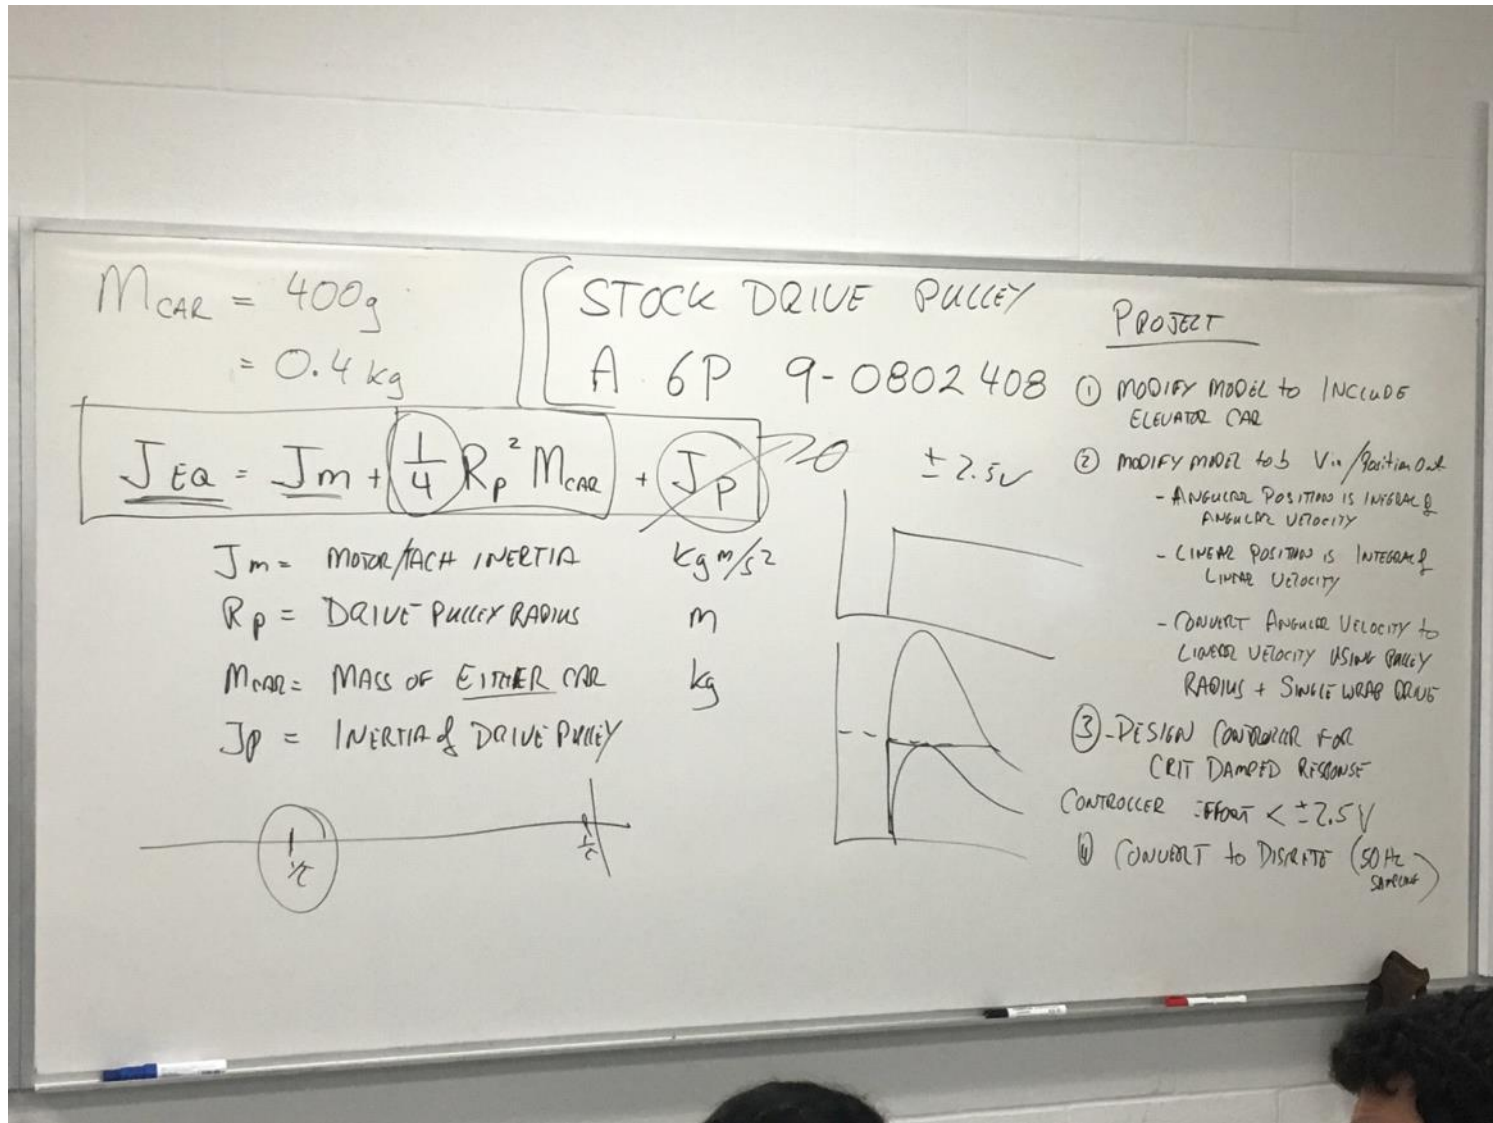 MCAR = 400g
= 0.4 kg
STOCK DRIVE PULLEY
A 6P 9-0802408
JEQ = Jm + 1/4 Rp² MCAR + Jp → 0
Jm = MOTOR/TACH INERTIA kg m/s²
Rp = DRIVE PULLEY RADIUS m
MCAR = MASS OF EITHER CAR kg
Jp = INERTIA of DRIVE PULLEY
1/τ
1/τ
± 2.5V
PROJECT
① MODIFY MODEL to INCLUDE
ELEVATOR CAR
② MODIFY MODEL to Vin/Position Out
- ANGULAR POSITION IS INTEGRAL of
ANGULAR VELOCITY
- LINEAR POSITION IS INTEGRAL of
LINEAR VELOCITY
- CONVERT ANGULAR VELOCITY to
LINEAR VELOCITY USING PULLEY
RADIUS + SINGLE WRAP DRIVE
③ - DESIGN CONTROLLER FOR
CRIT DAMPED RESPONSE
CONTROLLER EFFORT < ±2.5V
④ CONVERT to DISCRETE (50Hz
SAMPLING)